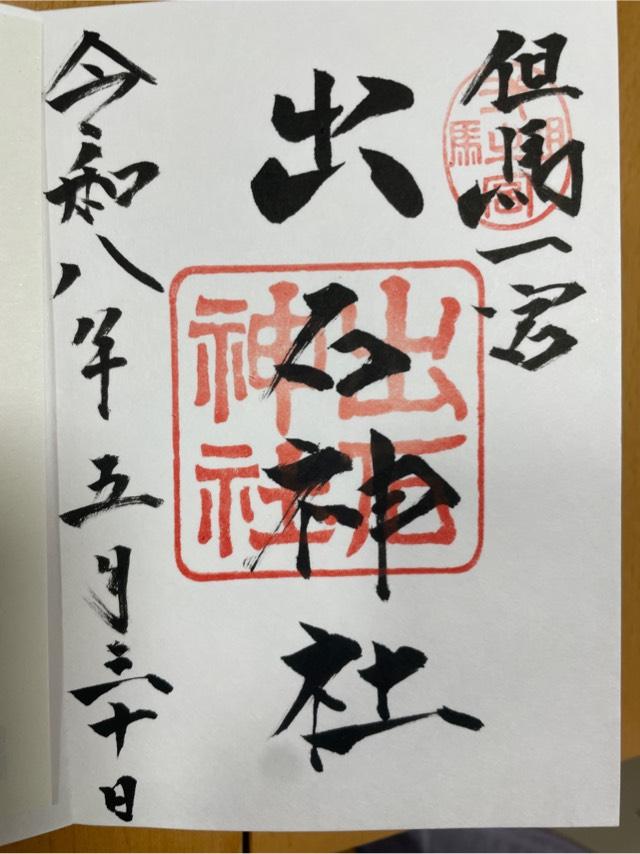 但馬一宮
出石神社
令和八年五月三十日
出石
神社